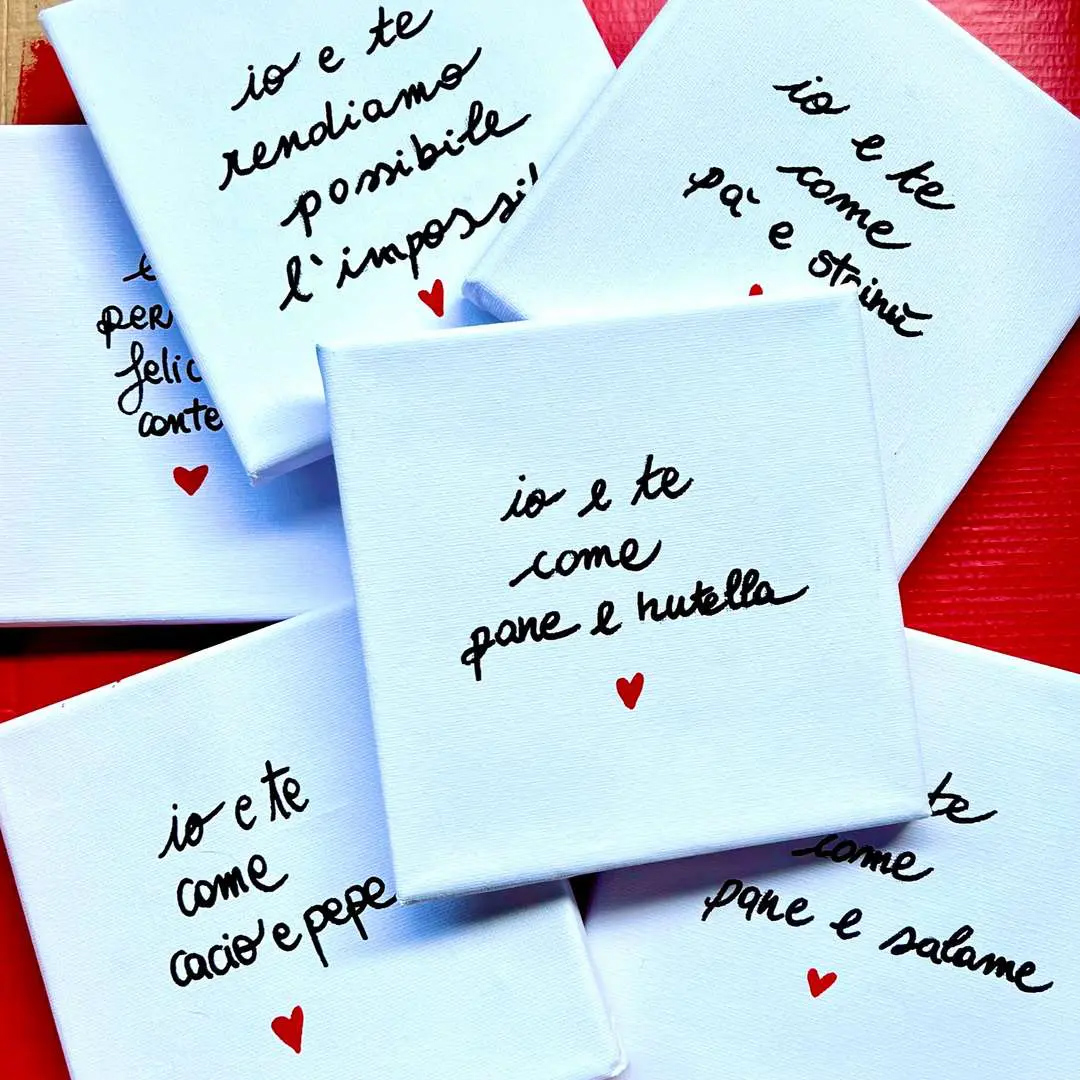 io e te
rendiamo
possibile
l'impossi
io e te
come
pà e strinù
per
felic
conte
io e te
come
pane e nutella
io e te
come
cacio e pepe
te
come
pane e salame